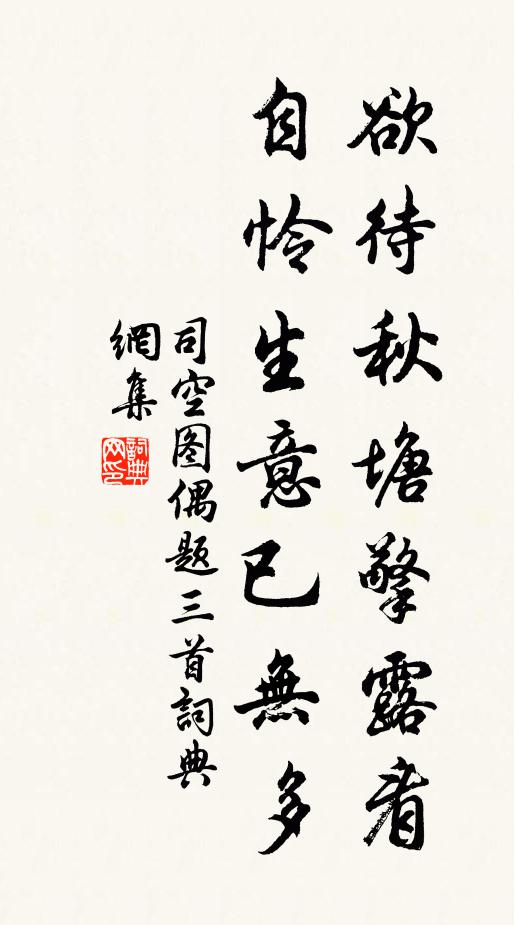 欲待秋塘擎露看
自怜生意已無多
司空图偶题三首詞典
網集
詞典网印